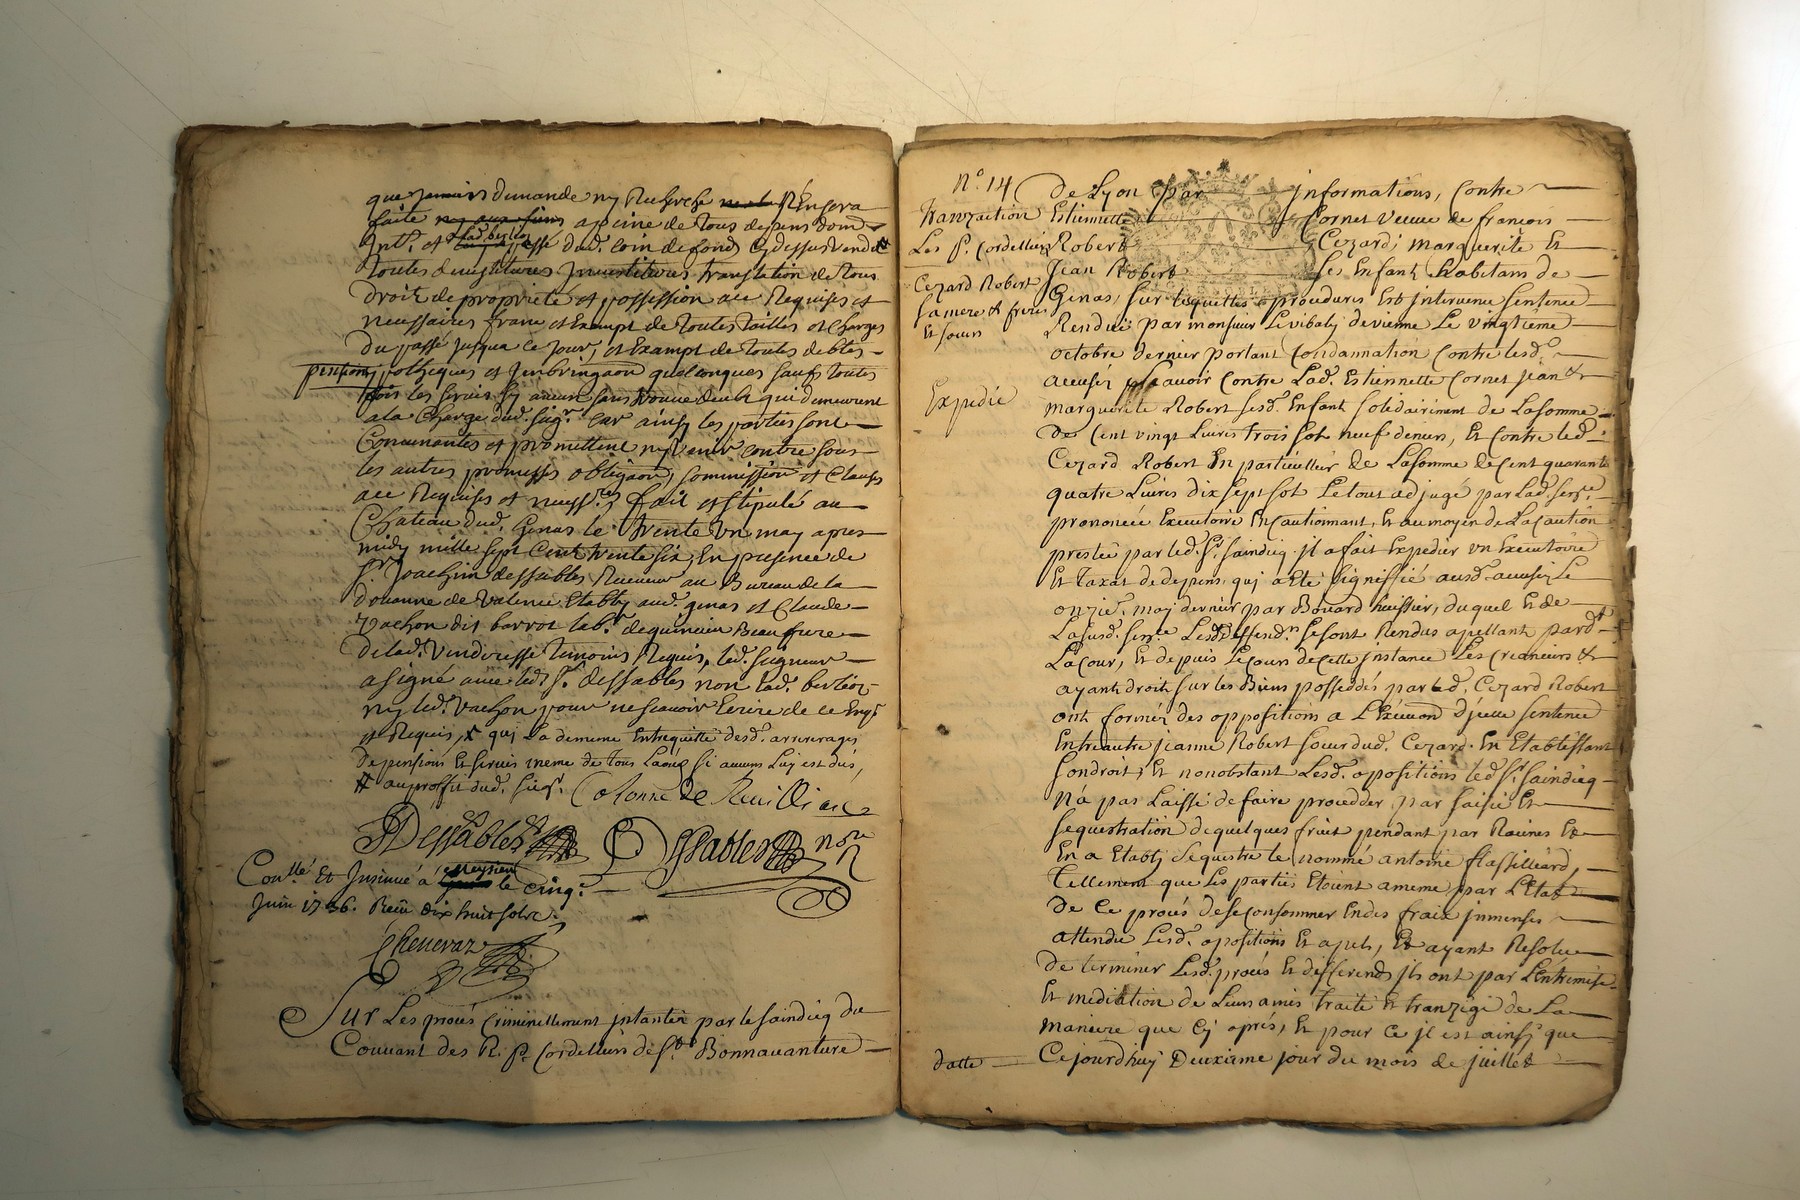 que jamais demande ny Recherche Ren sera
faite ny aux siens a peine de tous depens dom
Int. et lad. berlioz dud. coin de fond cy dessus vendu
toutes demystitures Jnvestitures translation de tous
droit de proprieté et possession avec Requises et
necessaires franc et Exampt de toutes tailles et charges
du passé jusqua ce Jour, et Exampt de toutes debtes
pensions ypothèques et quelconques sauf toutes
fois les servis sy aucun sont qui demeurent
a la charge dud. seigr. car ainsy les parties sont
Convenantes et promettent ny venir contre sous
les autres promesses obligaon, sommission et clauses
avec Requises et necessres fait et stipulé au
Chateau dud. Genas le trente un may apres
midy mille sept Cent trente six, En presence de
Sr. Joachim dessables Receveur au Bureau de la
douanne de Valence Etably aud. genas et Claude
Vachon dit barrot labr. de beaufrere
de lad. Vendeuresse temoins Requis, led. seigneur
a signé avec led. Sr. dessables non lad. berlioz
ny led. Vachon pour ne scavoir Ecrire de ce Enqs
et Requis, qui la demeure Entrequitte desd. arrerages
de pensions et servis meme de tous Laods si aucuns Luy est dus,
# au proffit dud. sieigr. Colonne de
Dessables Dessables nore
Conllé Et Insinué à Meysieu le cinq.
Juin 1736. Reçu dix huit sols.
Chenevaz
Sur Les procés criminellement jntantée par le saindicq du
Couvant des R. P. Cordelliers de St. Bonnavanture
N.o 14
tranzaction
Les P. Cordelliers
Cezard Robert
sa mere & freres
Et soeurs
Expedié
de Lyon par jnformations, contre
Estiennette Cornet veuve de francois
Robert Cezard, marguerite Et
Jean Robert ses Enfant habitans de
Genas, sur lesquelles procedures Est intervenue sentence
Rendue par monsieur Levibaly de vienne Le vingtième
octobre dernier portant Condannation contre lesd.
accusés scavoir contre Lad. Estiennette Cornet jean &
marguerite Robert sesd. Enfant solidairement de La somme
de Cent vingt Livres trois sols neuf deniers, Et contre led.
Cezard Robert En particulier de La somme de cent quarante
quatre Livres dix sept sols Le tout adjugé par Lad. sence
prononcée Executoire En cautionnant, Et au moyen de La caution
prestée par led. Sr. saindicq. jl a fait Expedier un Executoire
Et taxat de depens qui a Eté signiffié ausd. accusés Le
onzie. may dernier par Bouard huissier, duquel Et de
La susd. sence Lesd. deffendrs se sont Rendus apellants pardt
La cour, Et depuis Le cours de cette jnstance Les creanciers &
ayants droits sur les Biens posseddés par led. Cezard Robert
ont formés des oppositions a L'Exécuon d'jcelle sentence
Entreautre jeanne Robert soeur dud. Cezard. En Etablissant
son droit; Et nonobstant Lesd. opositions led. Sr. saindicq
n'a pas Laissé de faire procedder par saisie Et
sequestration de quelques fruit pendant par Racines Et
En a Etably sequestre le nommé antoine flassilleard,
tellement que Les parties Etoient a meme par L'Etat
de ce procés de se Consommer En des fraix jmenses
attendu Lesd. opositions Et apels, Et ayant Resolue
de terminer Lesd. procés Et differends jls ont par L'Entremise
Et mediation de Leurs amis traité Et tranzigé de La
maniere que Cy aprés, Et pour ce jl est ainsy que
datte Cejourdhuy Deuxieme jour du mois de juillet